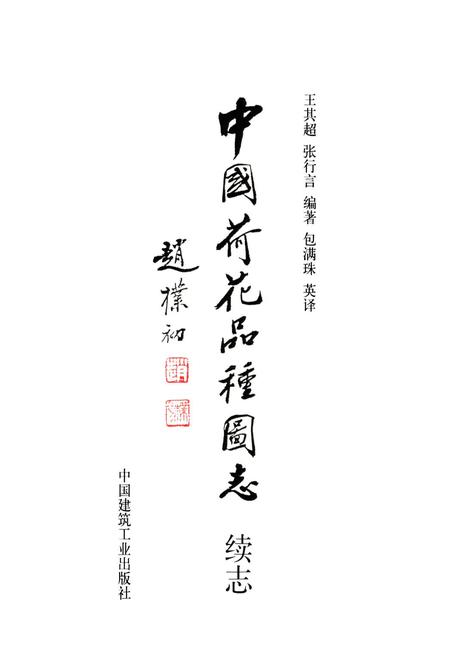 王其超 张行言 编著 包满珠 英译
中國荷花品種圖志 续志
趙樸初
中国建筑工业出版社